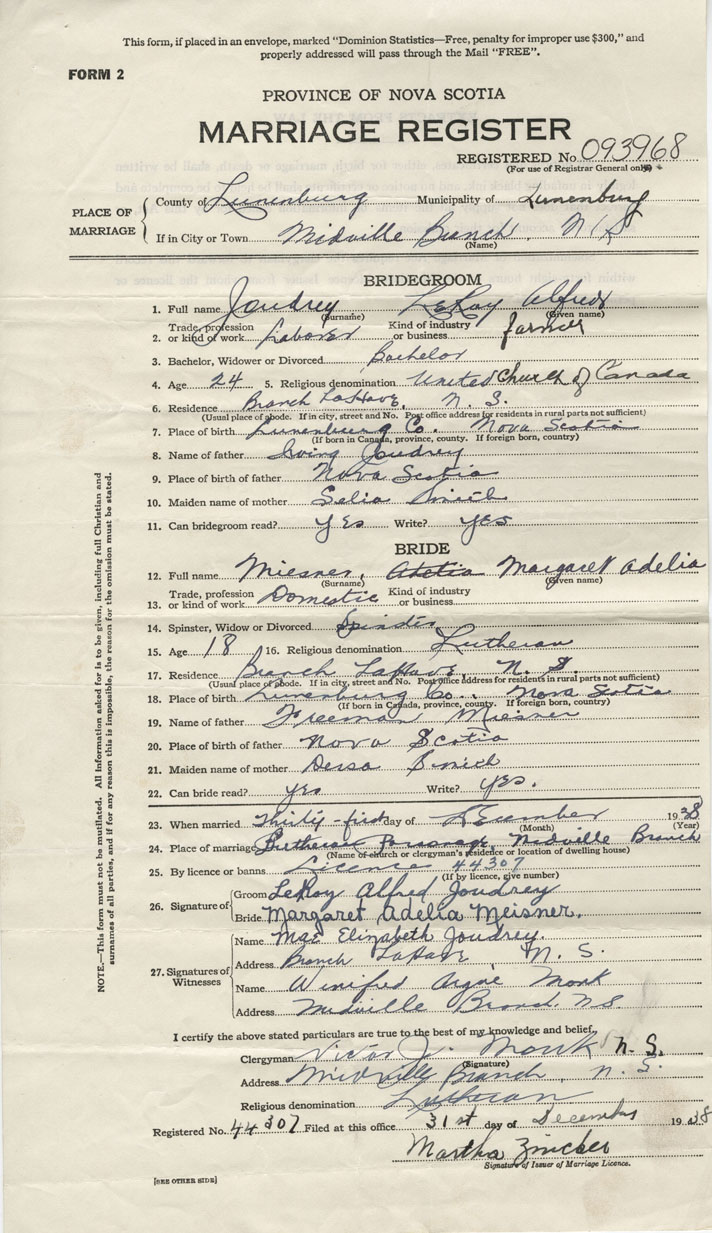 This form, if placed in an envelope, marked "Dominion Statistics—Free, penalty for improper use $300," and
properly addressed will pass through the Mail "FREE".
FORM 2
PROVINCE OF NOVA SCOTIA
MARRIAGE REGISTER
REGISTERED No. 093968
(For use of Registrar General only)
PLACE OF MARRIAGE
County of Lunenburg Municipality of Lunenburg
If in City or Town Midville Branch, N.S
(Name)
BRIDEGROOM
1. Full name Joudrey LeRoy Alfred
(Surname) (Given name)
2. Trade, profession or kind of work Laborer Kind of industry or business farmer
3. Bachelor, Widower or Divorced Bachelor
4. Age 24 5. Religious denomination United Church of Canada
6. Residence Branch LaHave, N. S.
(Usual place of abode. If in city, street and No. Post office address for residents in rural parts not sufficient)
7. Place of birth Lunenburg Co. Nova Scotia
(If born in Canada, province, county. If foreign born, country)
8. Name of father Irving Joudrey
9. Place of birth of father Nova Scotia
10. Maiden name of mother Selia
11. Can bridegroom read? yes Write? yes
BRIDE
12. Full name Miesner, Margaret Adelia
(Surname) (Given name)
13. Trade, profession or kind of work Domestic Kind of industry or business
14. Spinster, Widow or Divorced Spinster
15. Age 18 16. Religious denomination Lutheran
17. Residence Branch LaHave, N. S.
(Usual place of abode. If in city, street and No. Post office address for residents in rural parts not sufficient)
18. Place of birth Lunenburg Co. Nova Scotia
(If born in Canada, province, county. If foreign born, country)
19. Name of father Freeman Miesner
20. Place of birth of father Nova Scotia
21. Maiden name of mother
22. Can bride read? yes Write? yes.
23. When married Thirty-first day of December 1938
(Month) (Year)
24. Place of marriage Lutheran Parsonage, Midville Branch
(Name of church or clergyman's residence or location of dwelling house)
25. By licence or banns Licence 44307
(If by licence, give number)
26. Signature of
Groom LeRoy Alfred Joudrey
Bride Margaret Adelia Meisner.
27. Signatures of Witnesses
Name Mae Elizabeth Joudrey.
Address Branch LaHave, N. S.
Name Winifred Argue Monk
Address Midville Branch, N.S.
I certify the above stated particulars are true to the best of my knowledge and belief,
Clergyman Victor J. Monk N. S.
(Signature)
Address Midville Branch, N. S.
Religious denomination Lutheran
Registered No. 44307 Filed at this office 31st day of December 1938
Martha Zincker
Signature of Issuer of Marriage Licence.
[SEE OTHER SIDE]
NOTE.—This form must not be mutilated. All information asked for is to be given, including full Christian and
surnames of all parties, and if for any reason this is impossible, the reason for the omission must be stated.